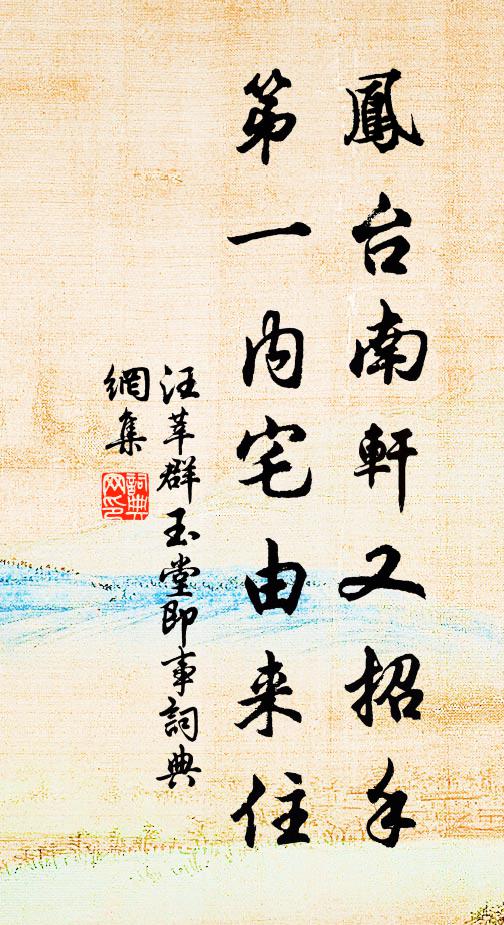 鳳台南軒又招手
第一内宅由来住
汪莘群玉堂即事詞典
網集
詞典
网印